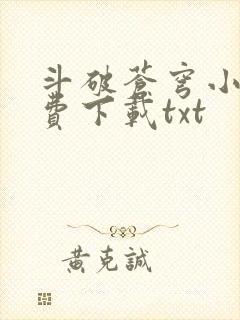 斗破蒼穹小
費下載txt
黃克誠